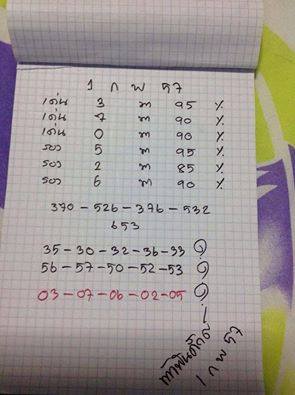 1 ก พ 57
เด่น 3 ท 95 %
เด่น 7 ท 90 %
เด่น 0 ท 90 %
รอง 5 ท 95 %
รอง 2 ท 85 %
รอง 6 ท 90 %
370 - 526 - 376 - 532
653
35 - 30 - 32 - 36 - 33
56 - 57 - 50 - 52 - 53
03 - 07 - 06 - 02 - 05
1 ก พ 57